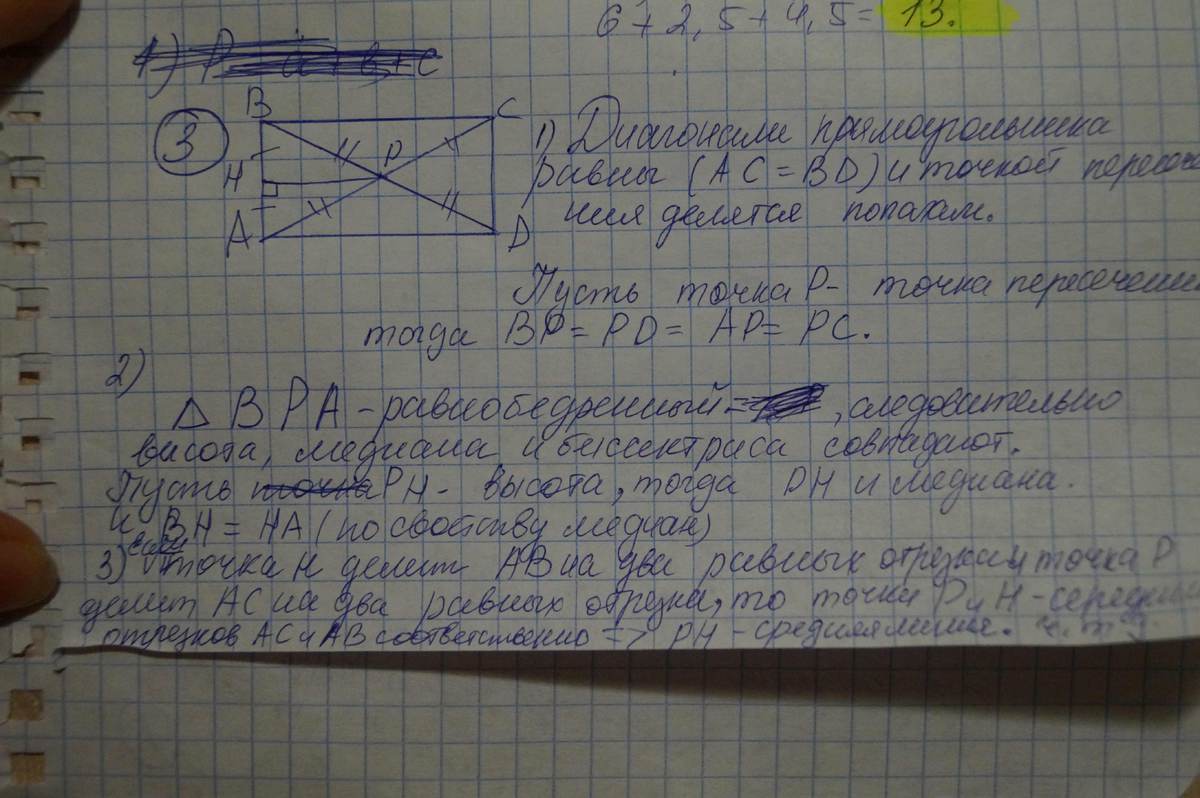 6 + 2,5 + 4,5 = 13.
1) P = a+b+c
3
B
C
H
P
A
D
1) Диагонали прямоугольника
равны (AC = BD) и точкой пересече
ния делятся попалам.
Пусть точка P- точка пересечения
тогда BP = PD = AP = PC.
2)
Δ BPA - равнобедренный = , следовительно
высота, медиана и биссектриса совпадают.
Пусть точка PH - высота, тогда PH и медиана.
и BH = HA (по свойству медиан)
3) если точка H делит AB на два равных отрезка и точка P
делит AC на два равных отрезка, то точки P и H - середины
отрезков AC и AB соответственно => PH - средняя линия. ч.т.д.